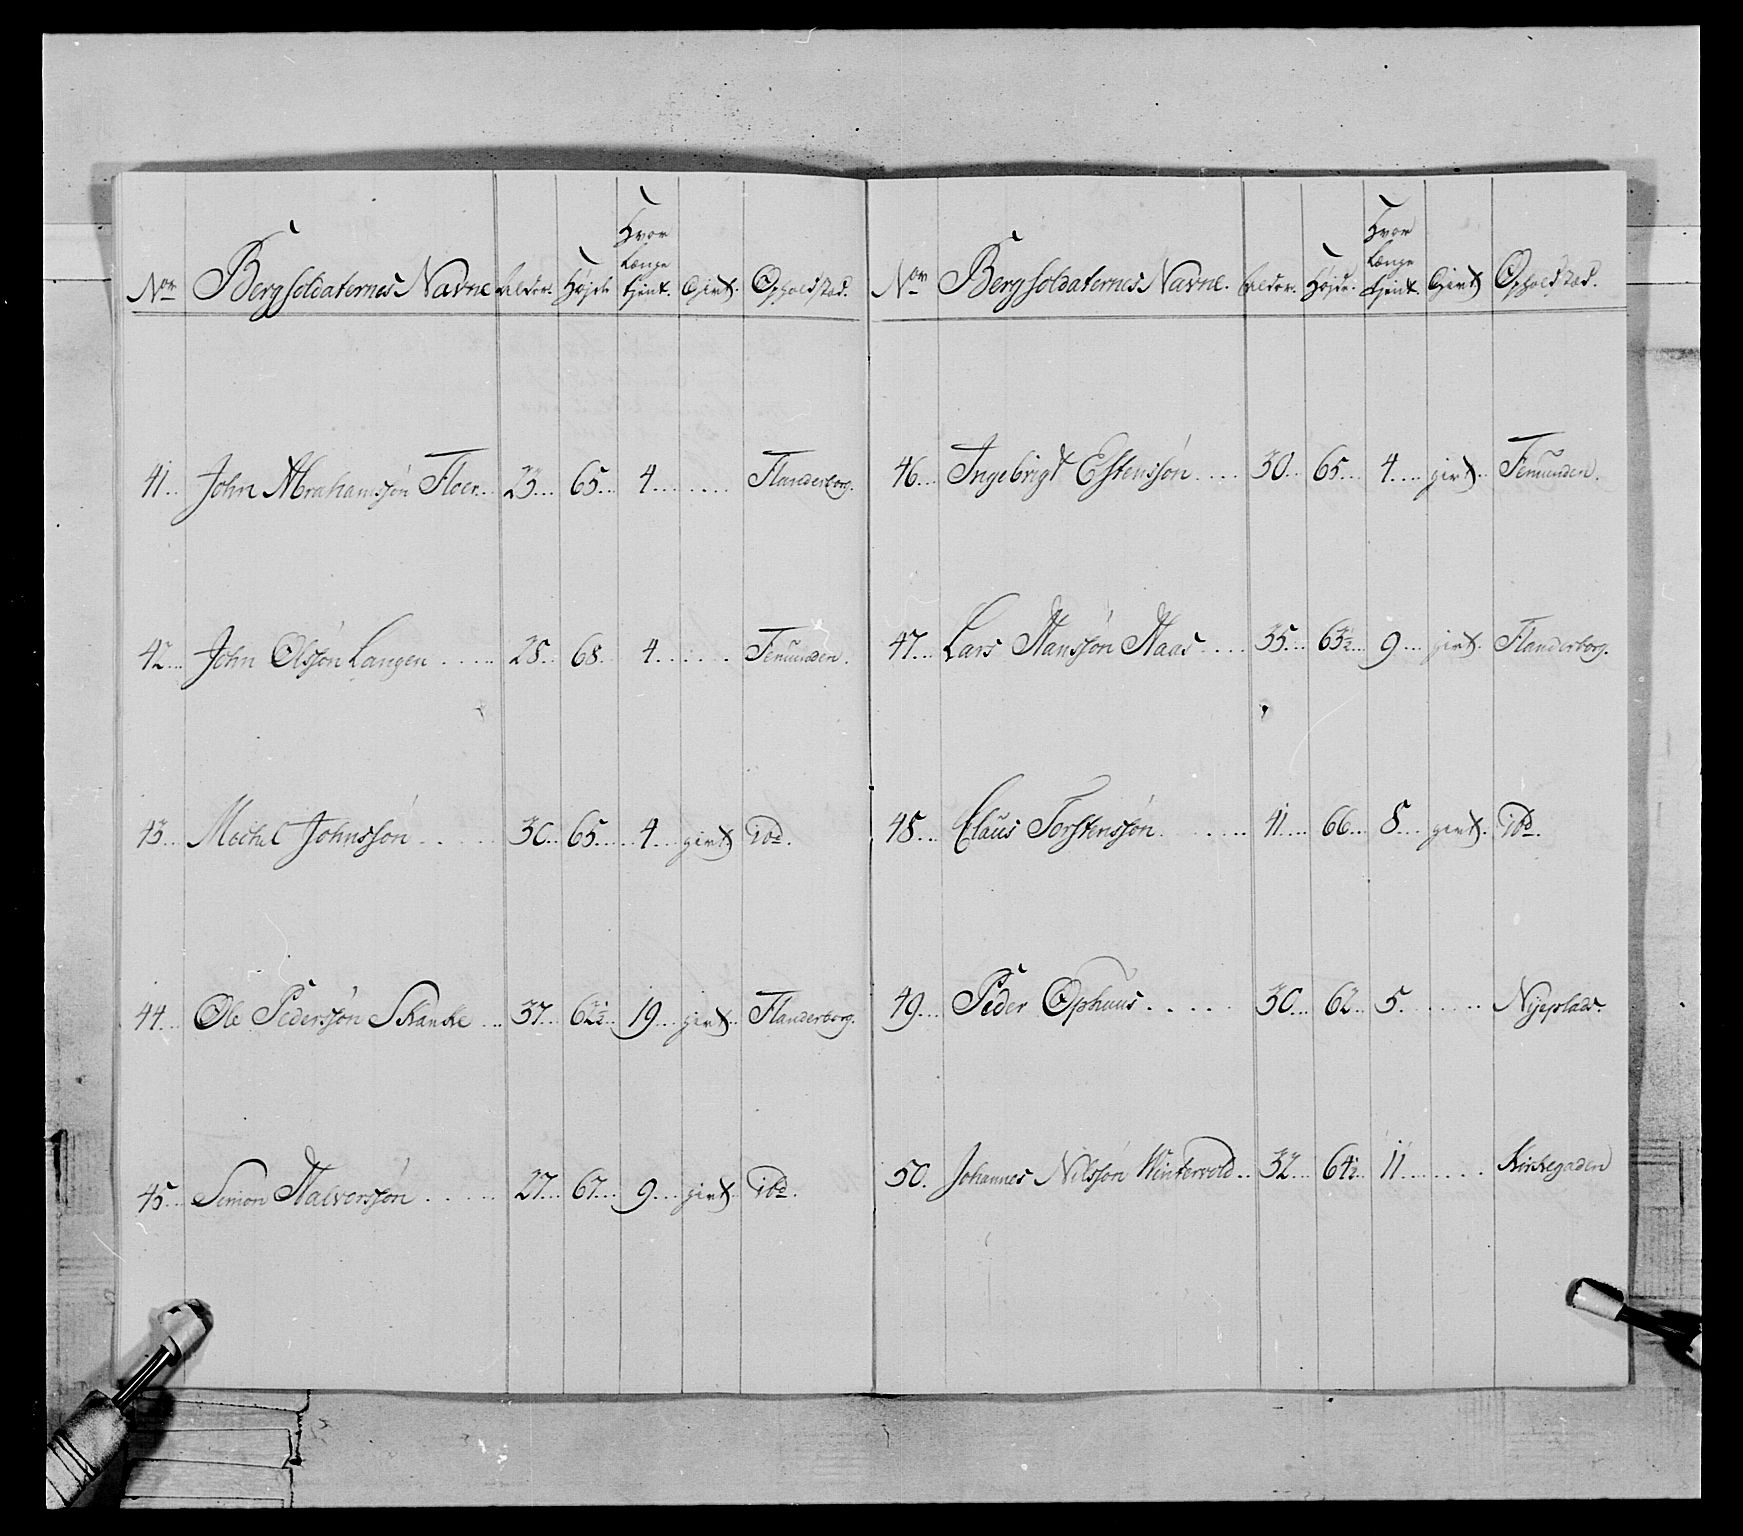 Nor Bergsoldaternes Navne Alder. Højde Hvor længe tjent. Givt. Opholdstæd.
41... John Abrahamssøn Floer... 23... 65... 4....... Flanderborg.
42... John Olssøn Langen ...... 28... 68. 4....... Femunden.
43... Mechel Johnssøn ...... 30... 65..... 4... givt ibd.
44... Ole Pederssøn Skanke ... 37... 62½... 19... givt... Flanderborg.
45... Simon Halvorssøn ...... 27... 67... 9... givt... ibd.
Nor Bergsoldaternes Navne. Alder. Højde. Hvor længe tjent. Givt Opholdstæd.
46... Ingebrigt Estenssøn .... 30... 65... 4.... givt.. Femunden.
47... Lars Hanssøn Haas .... 35... 63½... 9... givt. Flanderborg.
48... Claus Torstenssøn ...... 41... 66... 8... givt. ibd.
49... Peder Ophuus ..... 30... 62... 5....... Nyeplads.
50. Johannes Nilssøn Wintervold.. 32... 64½.. 11....... Kirkegaden